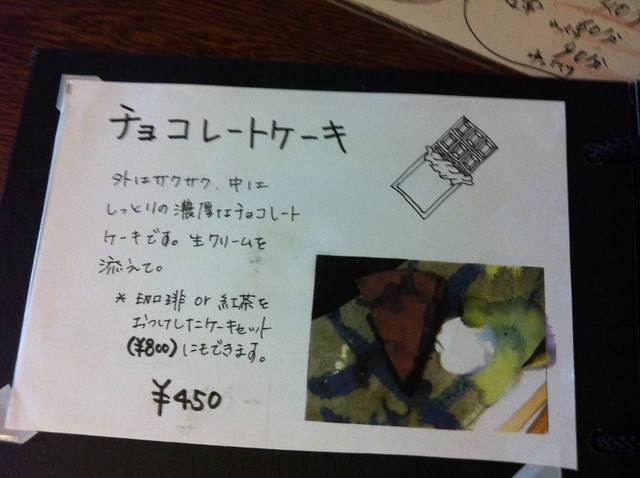 チョコレートケーキ
外はサクサク、中は
しっとりの濃厚なチョコレート
ケーキです。生クリームを
添えて。
* 珈琲 or 紅茶を
おつけしたケーキセット
(¥800)にもできます。
¥450